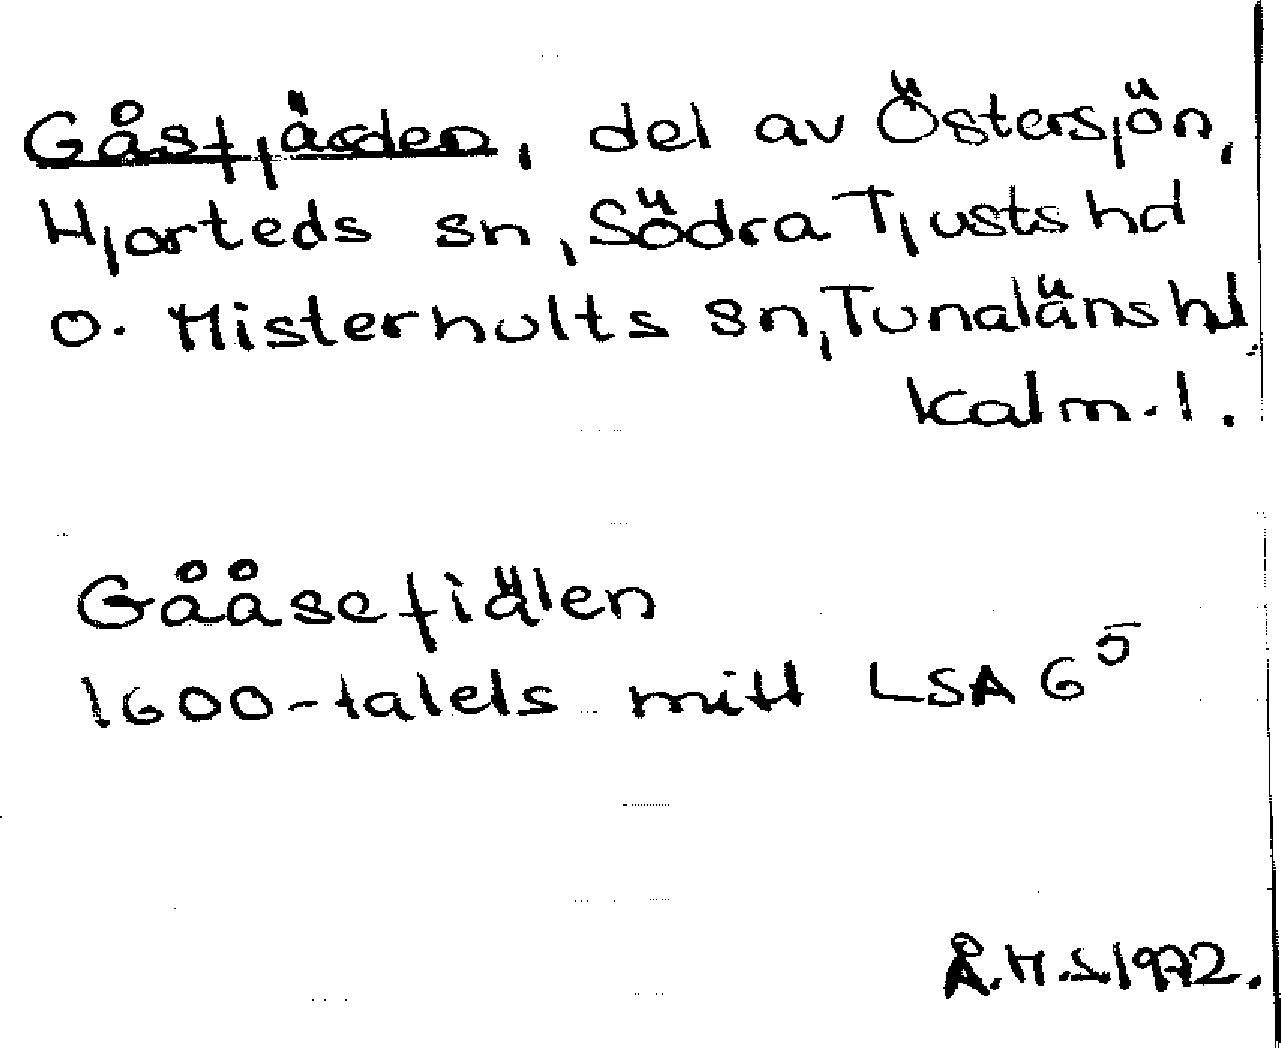 Gåsfjärden, del av Östersjön,
Hjorteds sn, Södra Tjusts hd
o. Misterhults sn, Tunaläns hd
Kalm. l.
Gååsefiälen
1600-talets mitt LSA G⁵
Å.H.S 1972.